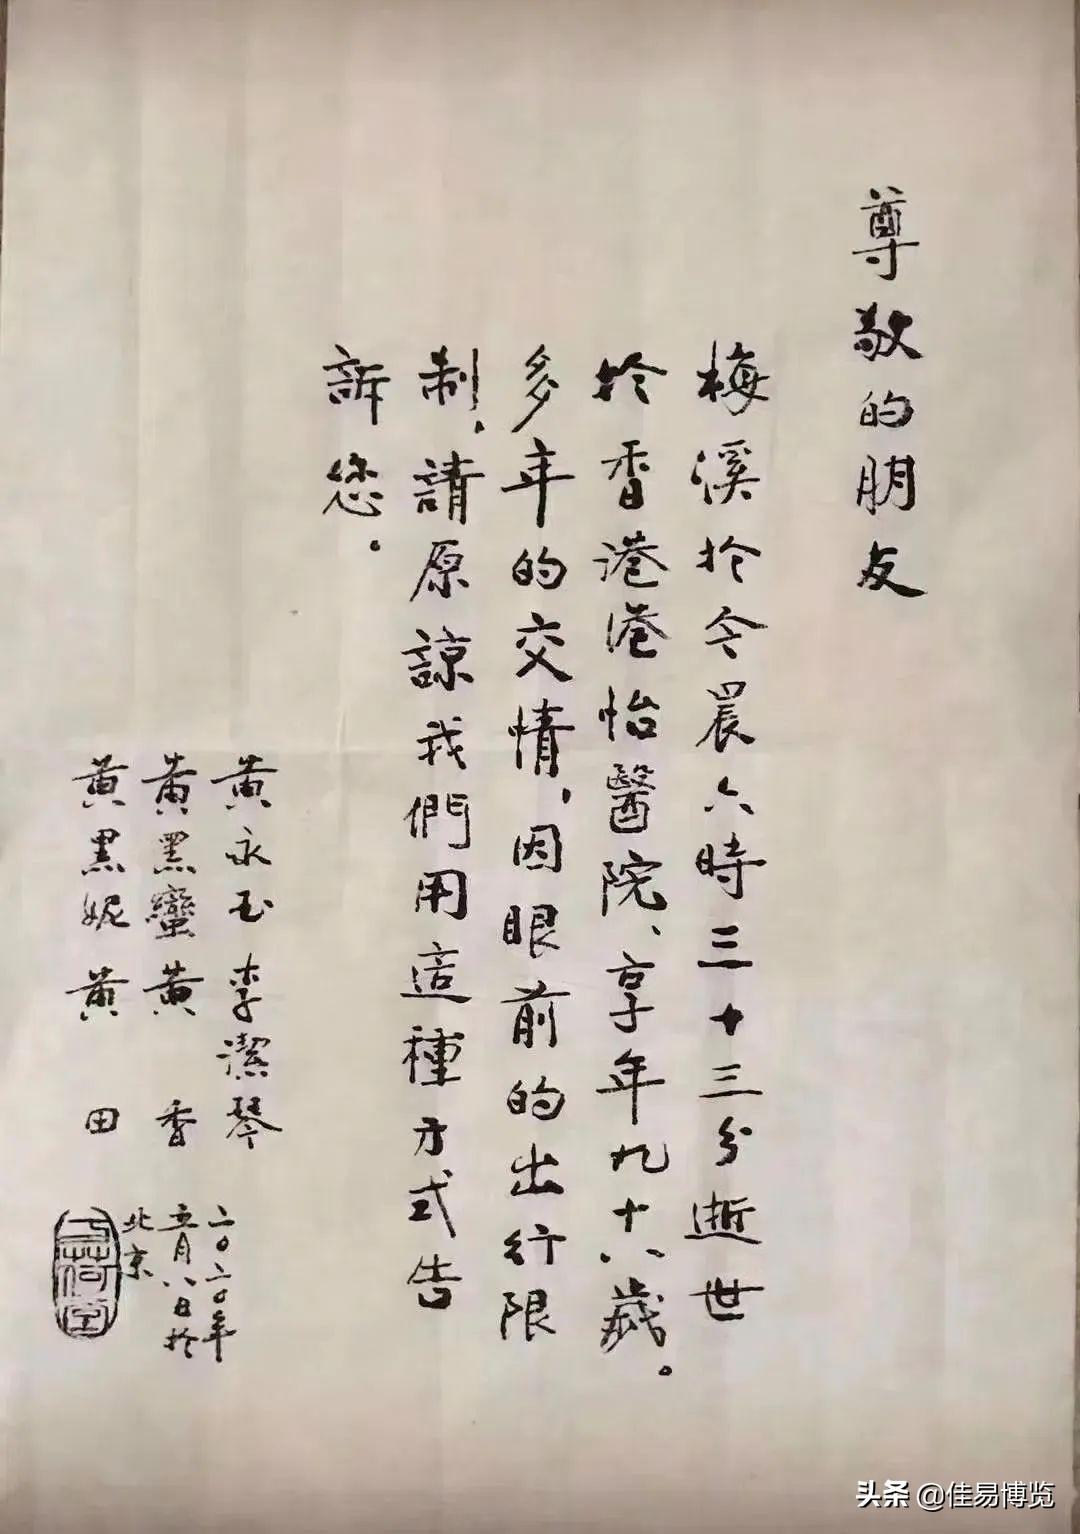 尊敬的朋友
梅溪於今晨六時三十三分逝世
於香港港怡醫院、享年九十八歲。
多年的交情，因眼前的出行限
制，請原諒我們用這種方式告
訴您。
黃永玉 李潔琴
黃黑蠻 黃香
黃黑妮 黃田
二〇二〇年
五月八日於
北京
头条 @佳易博览